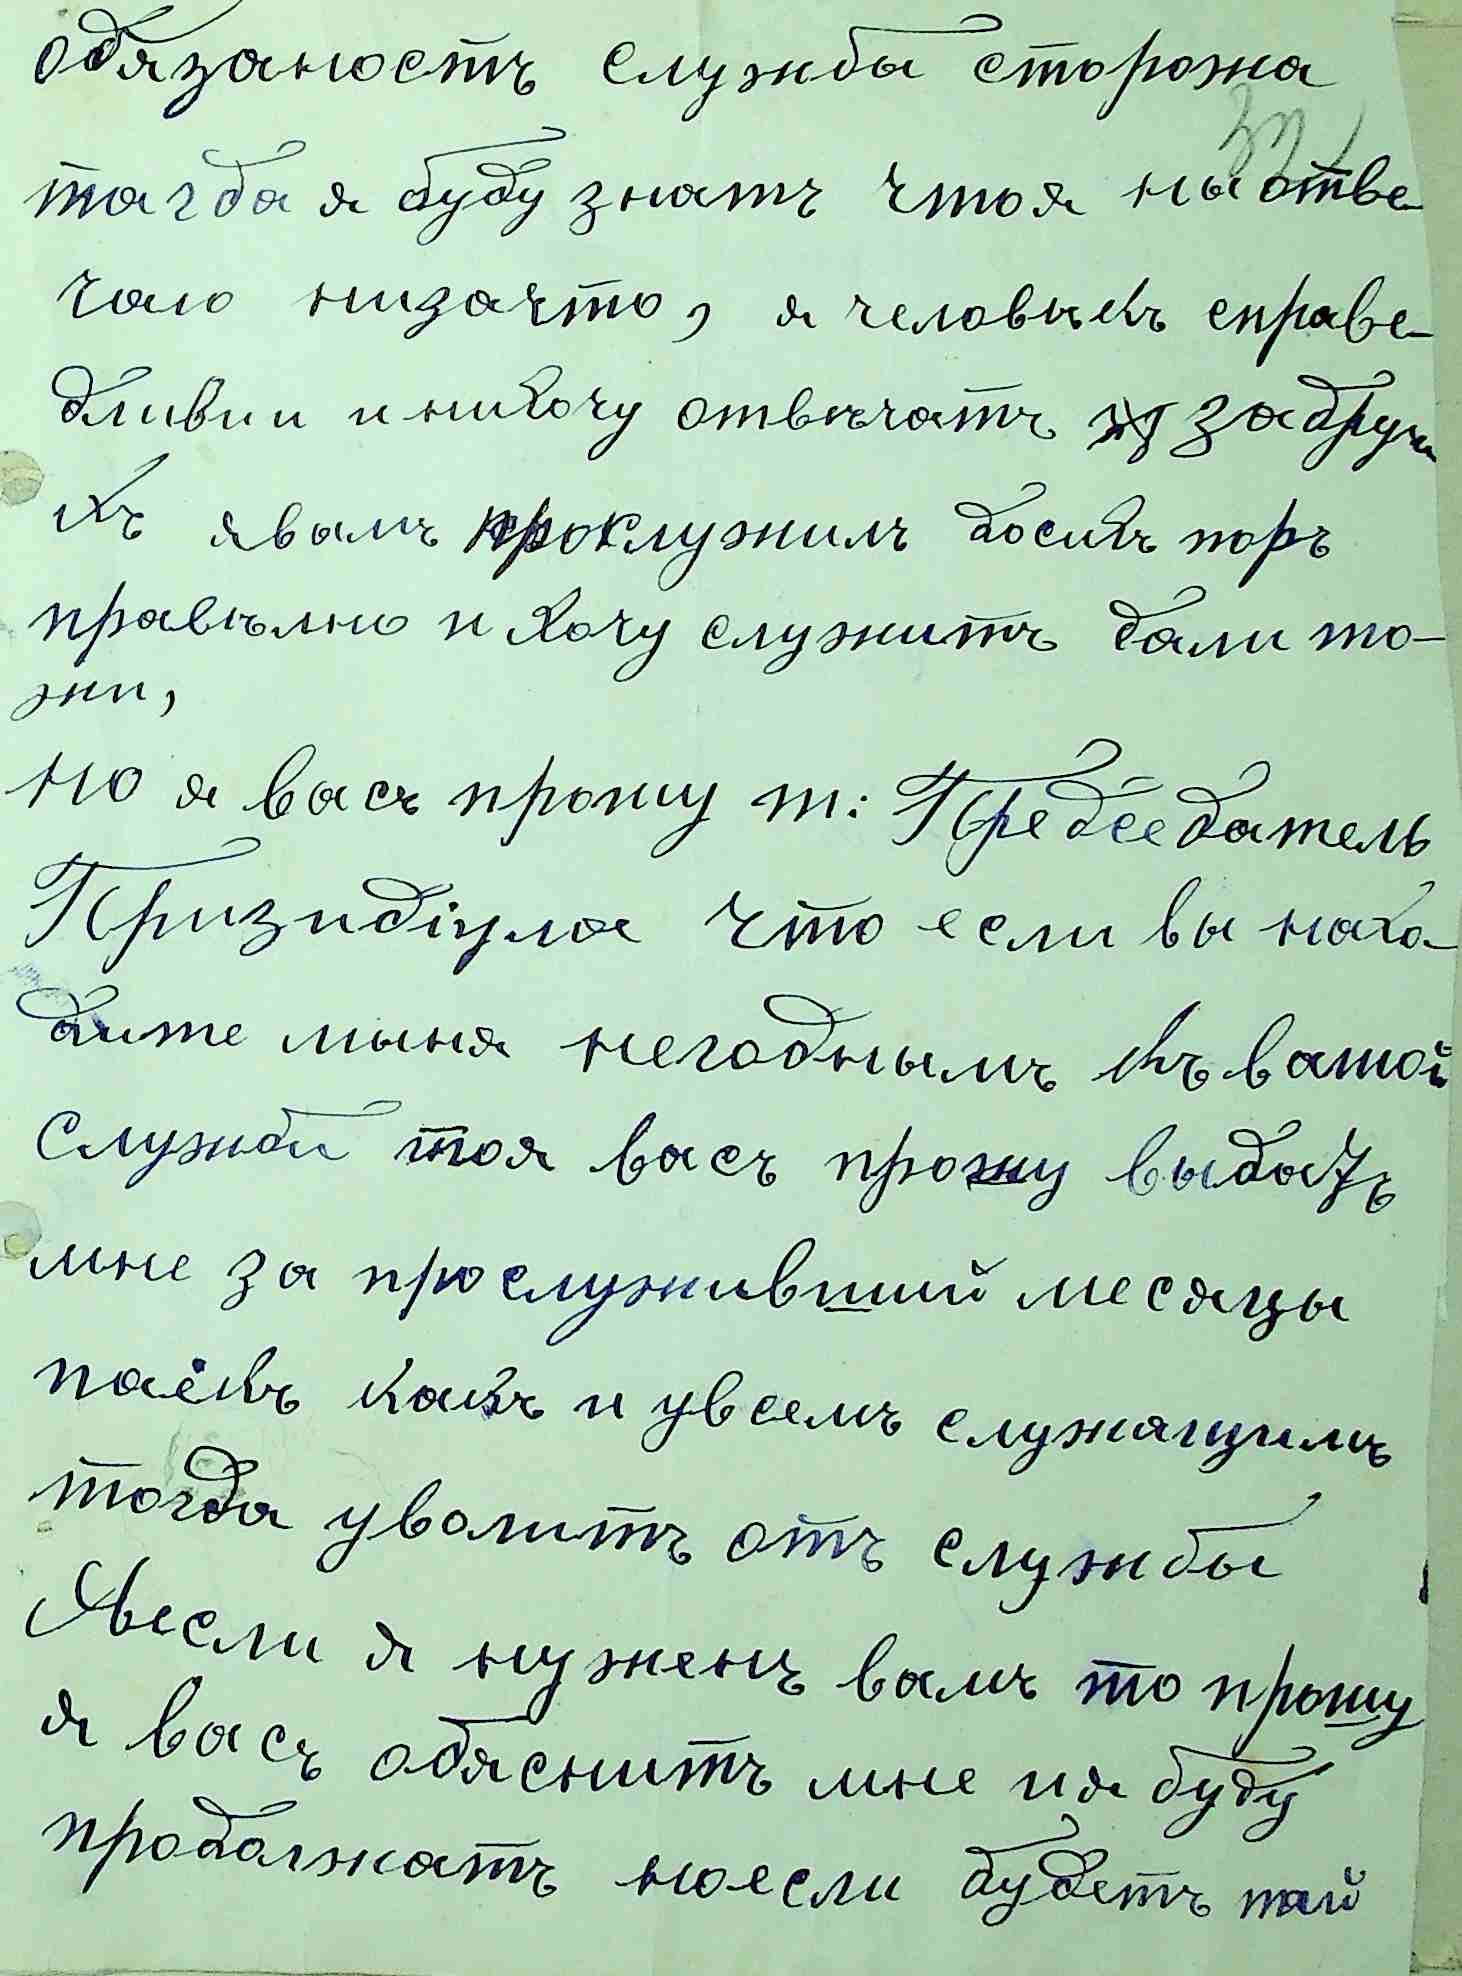 обязаность службы сторожа
тагда я буду знать чтоя ны отве-
чаю низачто, я человѣкъ справе-
дливи и нихочу отвѣчать за бручи
къ явамъ прослужилъ досихъ поръ
правѣлно и хочу служить дали то-
жи,
но я васъ прошу т: Председатель
Призидіума что если вы нахо-
дите мыня негоднымъ къ вашой
службы тоя васъ прошу выдать
мне за прослуживший месяцы
паёкъ какъ и увсемъ служащимъ
тогда уволить отъ службы
Явесли я нуженъ вамъ то прошу
я васъ обяснить мне ия буду
продолжать ноесли будетъ тай